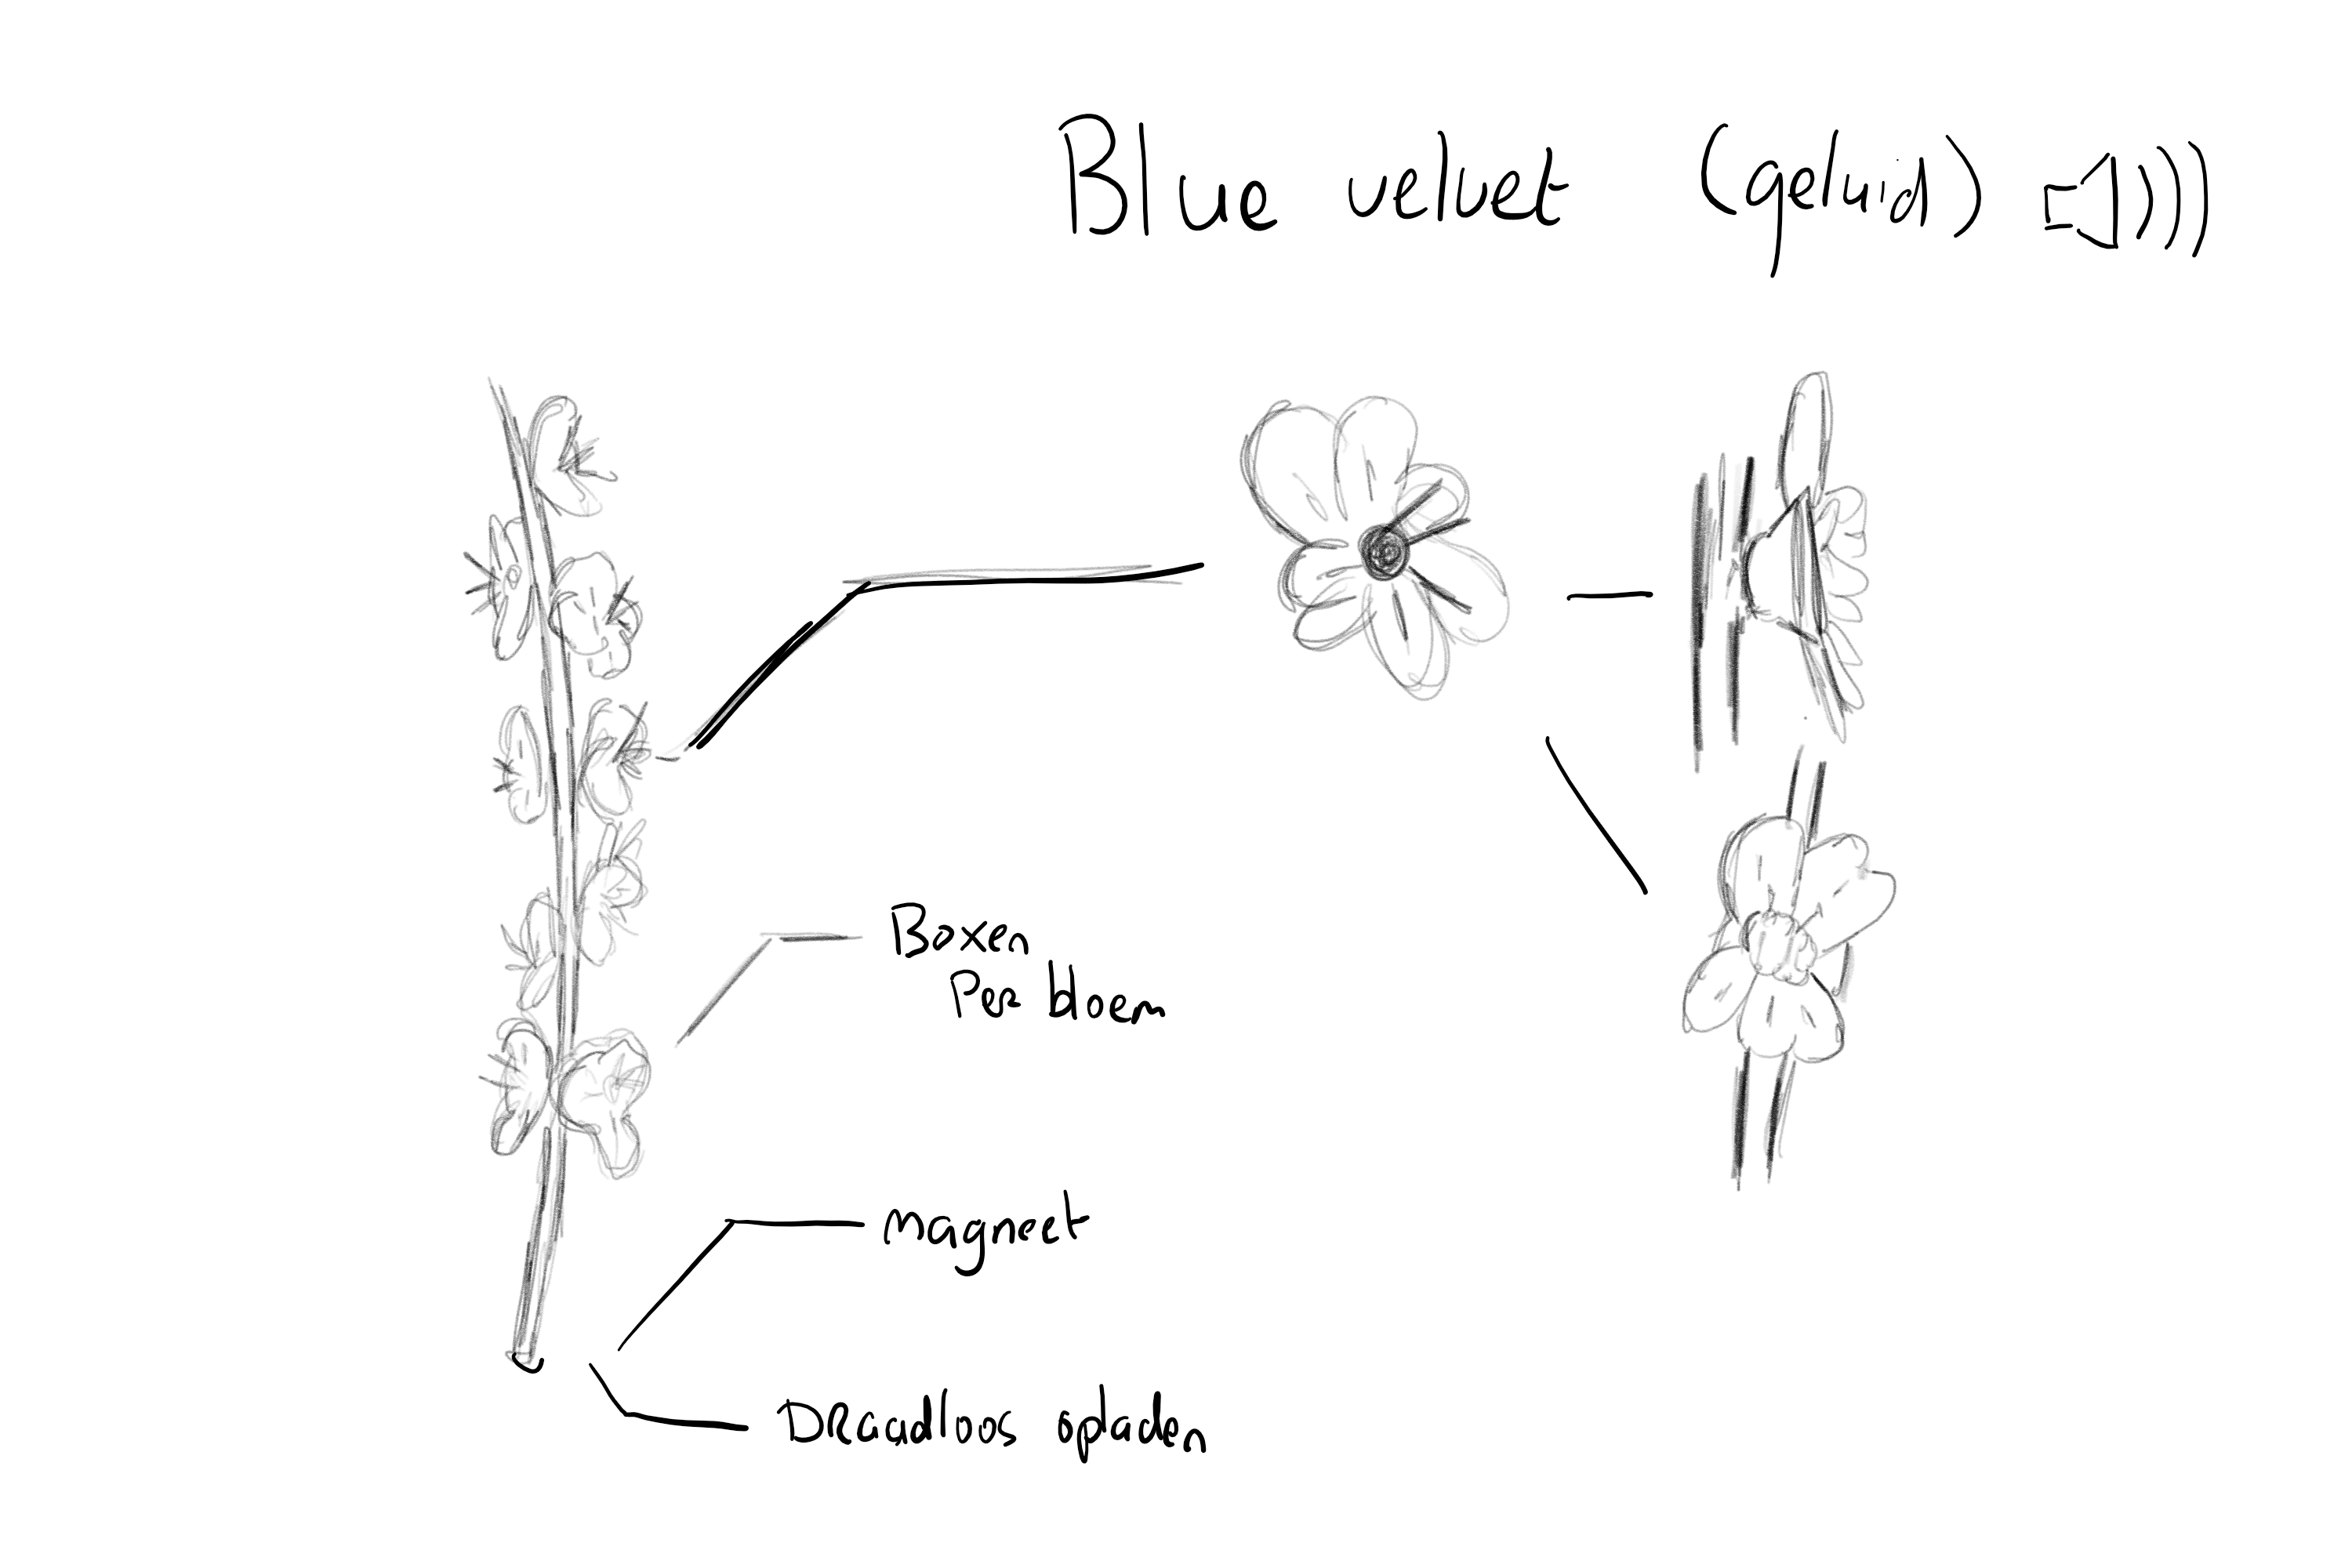 Blue velvet (geluid)
Boxen
Per bloem
magneet
Draadloos opladen